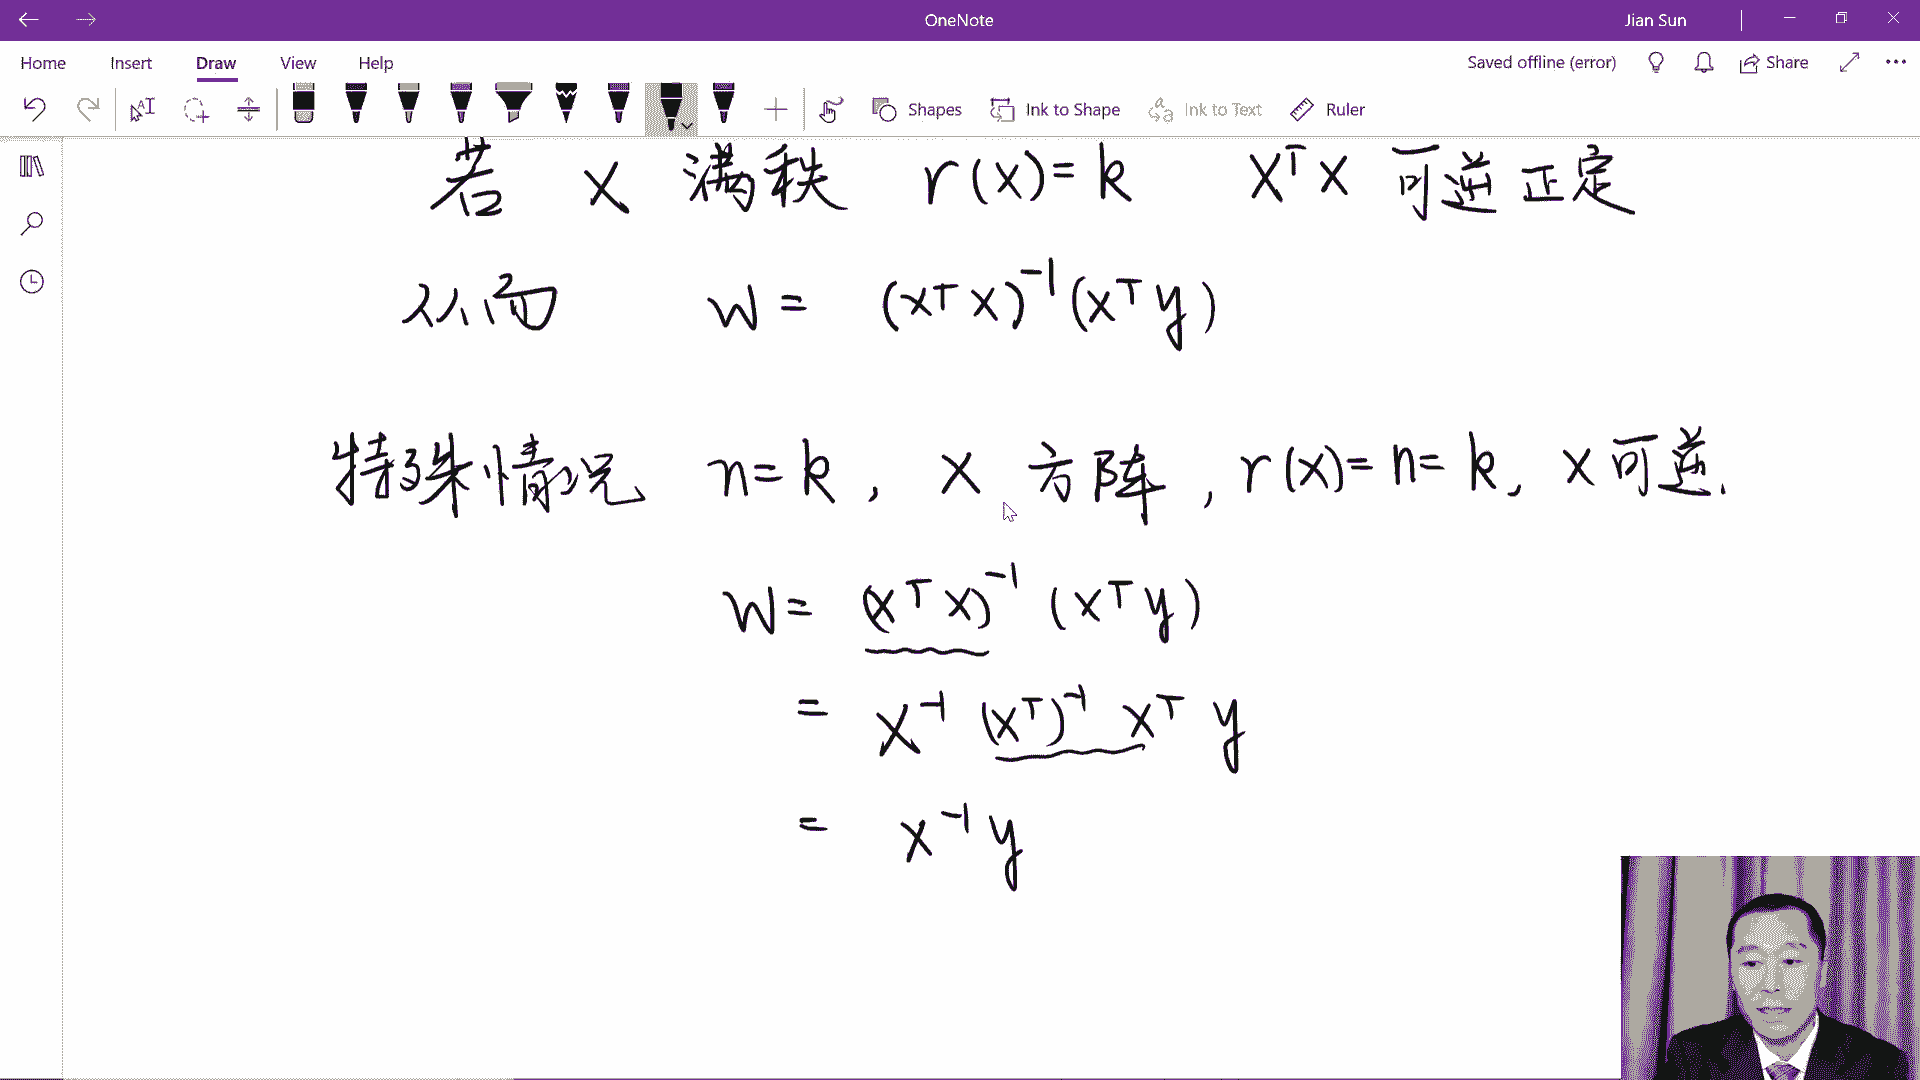 OneNote
Jian Sun
Home Insert Draw View Help
Saved offline (error)
Share
Shapes Ink to Shape Ink to Text Ruler
若 X 满秩 r(X)=k XᵀX 可逆正定
从而 W = (XᵀX)⁻¹(Xᵀy)
特殊情况 n=k, X 方阵, r(X)=n=k, X可逆.
W= (XᵀX)⁻¹ (Xᵀy)
= X⁻¹ (Xᵀ)⁻¹ Xᵀ y
= X⁻¹y